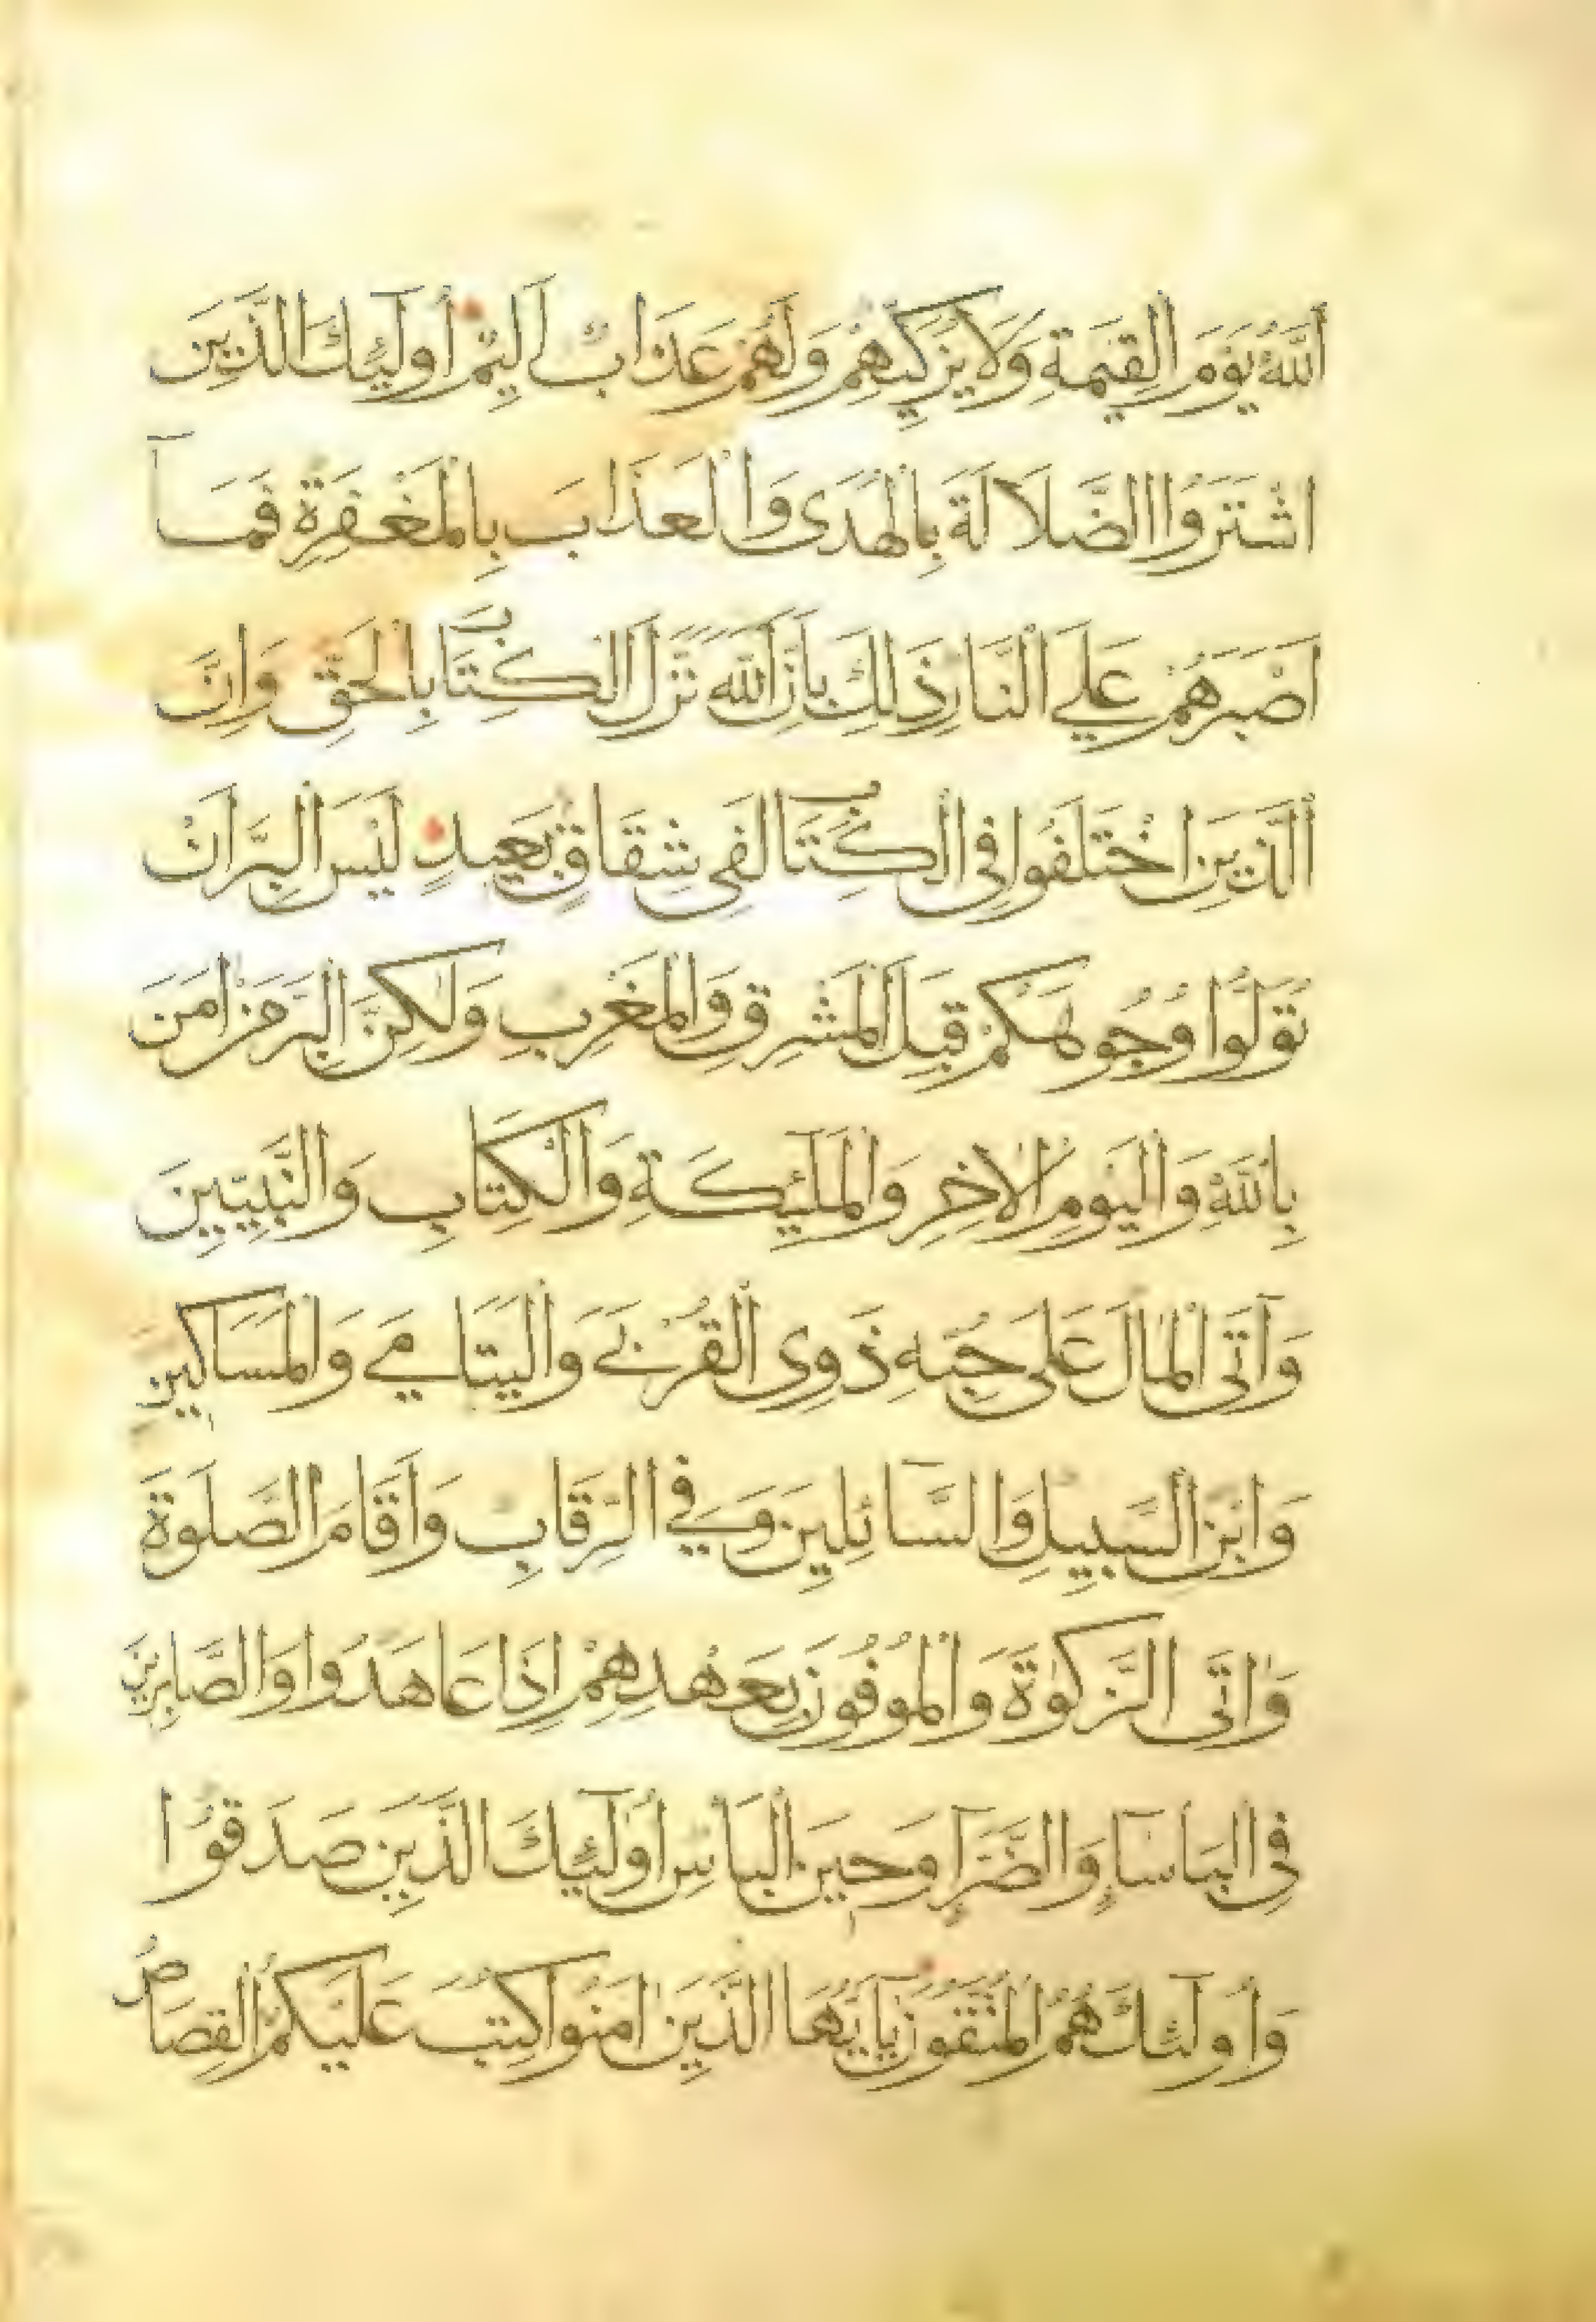 اَللّٰهُ يَوْمَ الْقِيٰمَةِ وَلَا يُزَكِّيهِمْ وَلَهُمْ عَذَابٌ اَلِيمٌ اُولَٓئِكَ الَّذِينَ
اشْتَرَوُا الضَّلَالَةَ بِالْهُدَى وَالْعَذَابَ بِالْمَغْفِرَةِ فَمَٓا
اَصْبَرَهُمْ عَلَي النَّارِ ذَلِكَ بِاَنَّ اللّٰهَ نَزَّلَ الْكِتَابَ بِالْحَقِّ وَاِنَّ
الَّذِينَ اخْتَلَفُوا فِي الْكِتَابِ لَفِي شِقَاقٍ بَعِيدٍ لَيْسَ الْبِرَّ اَنْ
تُوَلُّوا وُجُوهَكُمْ قِبَلَ الْمَشْرِقِ وَالْمَغْرِبِ وَلٰكِنَّ الْبِرَّ مَنْ اٰمَنَ
بِاللّٰهِ وَالْيَوْمِ الْاٰخِرِ وَالْمَلَٓئِكَةِ وَالْكِتَابِ وَالنَّبِيِّينَ
وَآتَى الْمَالَ عَلَى حُبِّهِ ذَوِى الْقُرْبَي وَالْيَتَامَي وَالْمَسَاكِينَ
وَابْنَ السَّبِيلِ وَالسَّٓائِلِينَ وَفِي الرِّقَابِ وَاَقَامَ الصَّلَوةَ
وَاٰتَى الزَّكٰوةَ وَالْمُوفُونَ بِعَهْدِهِمْ اِذَا عَاهَدُوا وَالصَّابِرِينَ
فِي الْبَاْسَٓاءِ وَالضَّرَّٓاءِ وَحِينَ الْبَاْسِ اُولَٓئِكَ الَّذِينَ صَدَقُوا
وَاُولَٓئِكَ هُمُ الْمُتَّقُونَ يَٓااَيُّهَا الَّذِينَ اٰمَنُوا كُتِبَ عَلَيْكُمُ الْقِصَاصُ